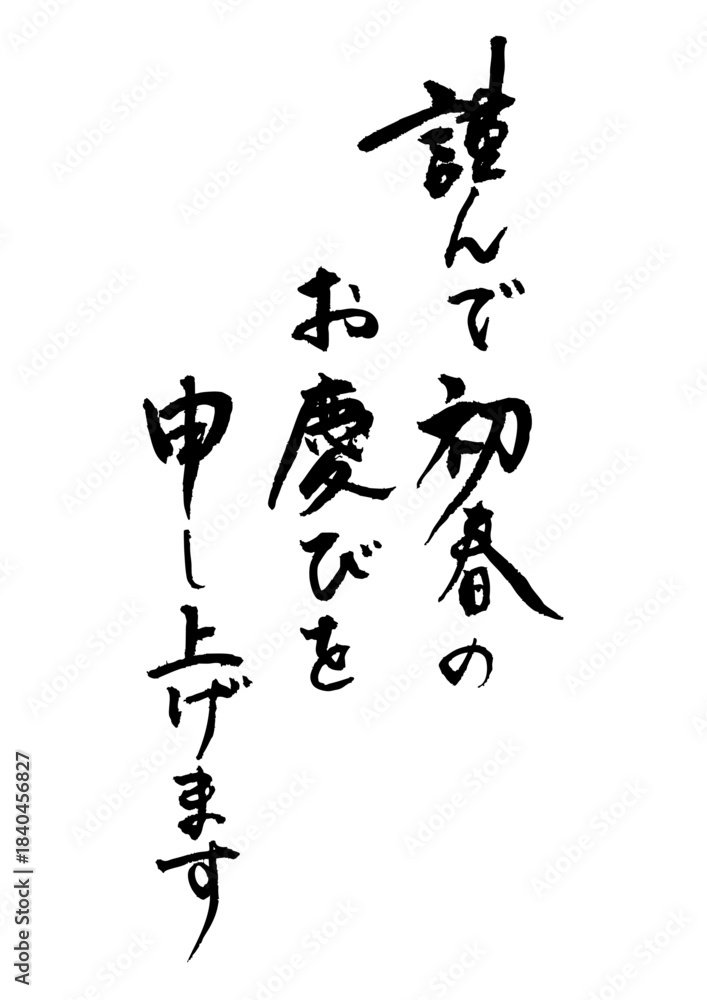 謹んで初春の
お慶びを
申し上げます
Adobe Stock | #1840456827